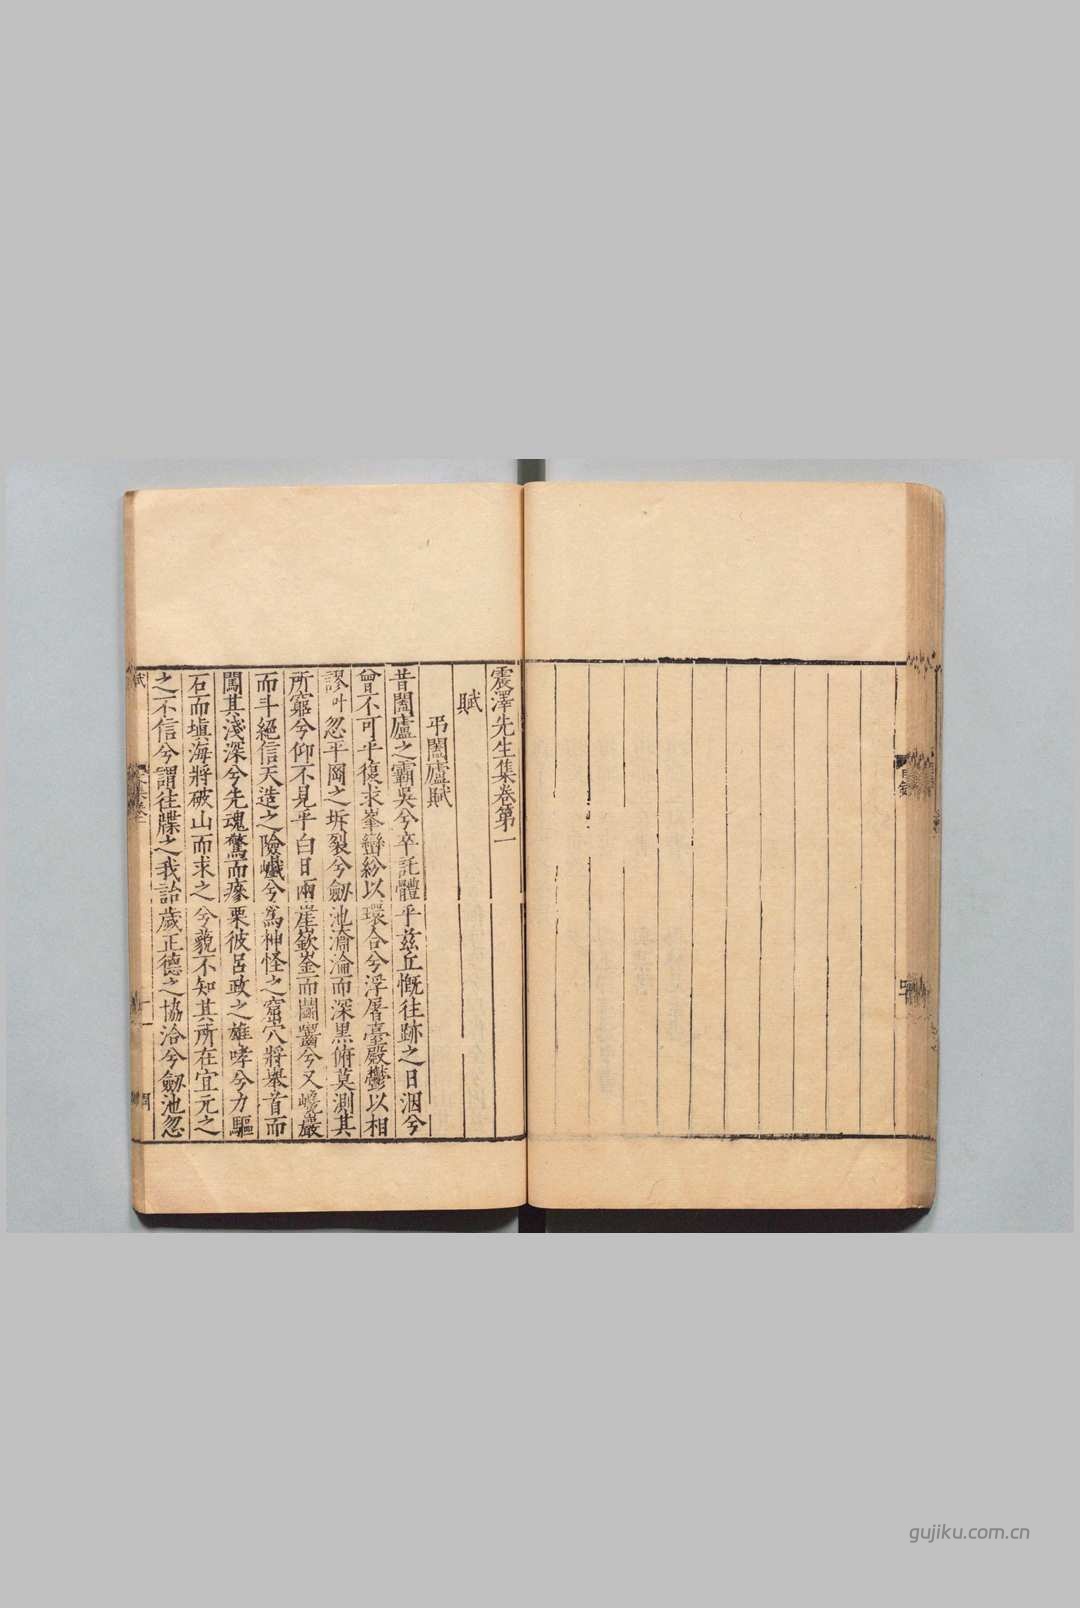 震澤先生集卷第一
賦
弔闔廬賦
昔闔廬之霸吳兮卒託體乎茲丘慨往跡之日湮兮
曾不可乎復求峯巒紛以環合兮浮屠臺殿鬱以相
謬叶忽平岡之坼裂兮劔池瀹淪而深黑俯莫測其
所窮兮仰不見乎白日兩崖嶔崟而鬭齶兮又巉巖
而斗絕信天造之險巇兮為神怪之窟穴將舉首而
闖其淺深兮先魂驚而瘮栗彼呂政之雄哮兮力驅
石而塡海將破山而求之兮藐不知其所在宜元之
之不信兮謂往牒之我詒歲正德之協洽兮劔池忽
gujiku.com.cn